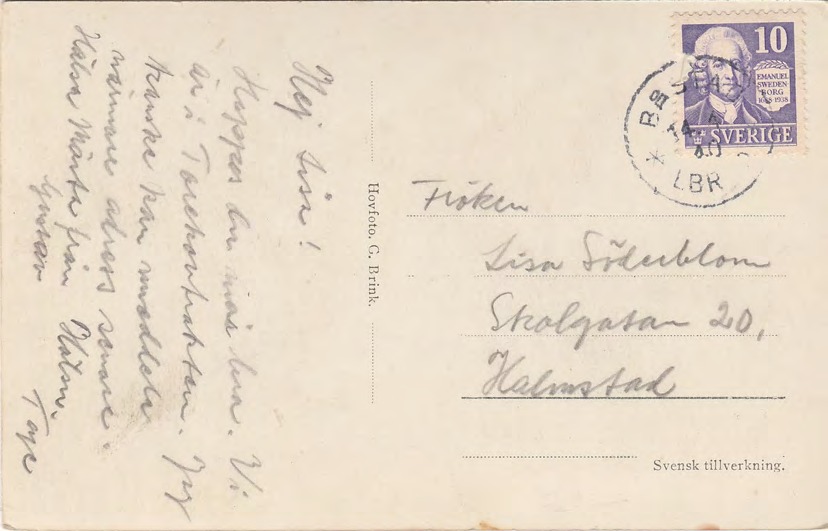 Hej Lisa!
Hoppas du mår bra. Vi
är i Torekovtrakten. Jag
kanske kan meddela
närmare adress senare.
Hälsa Märta från
Gustav
Hälsn.
Tage
Hovfoto. G. Brink.
10
EMANUEL
SWEDEN-
BORG
1688 1938
SVERIGE
BÅSTAD
40
* LBR
Fröken
Lisa Söderblom
Skolgatan 20,
Halmstad
Svensk tillverkning.